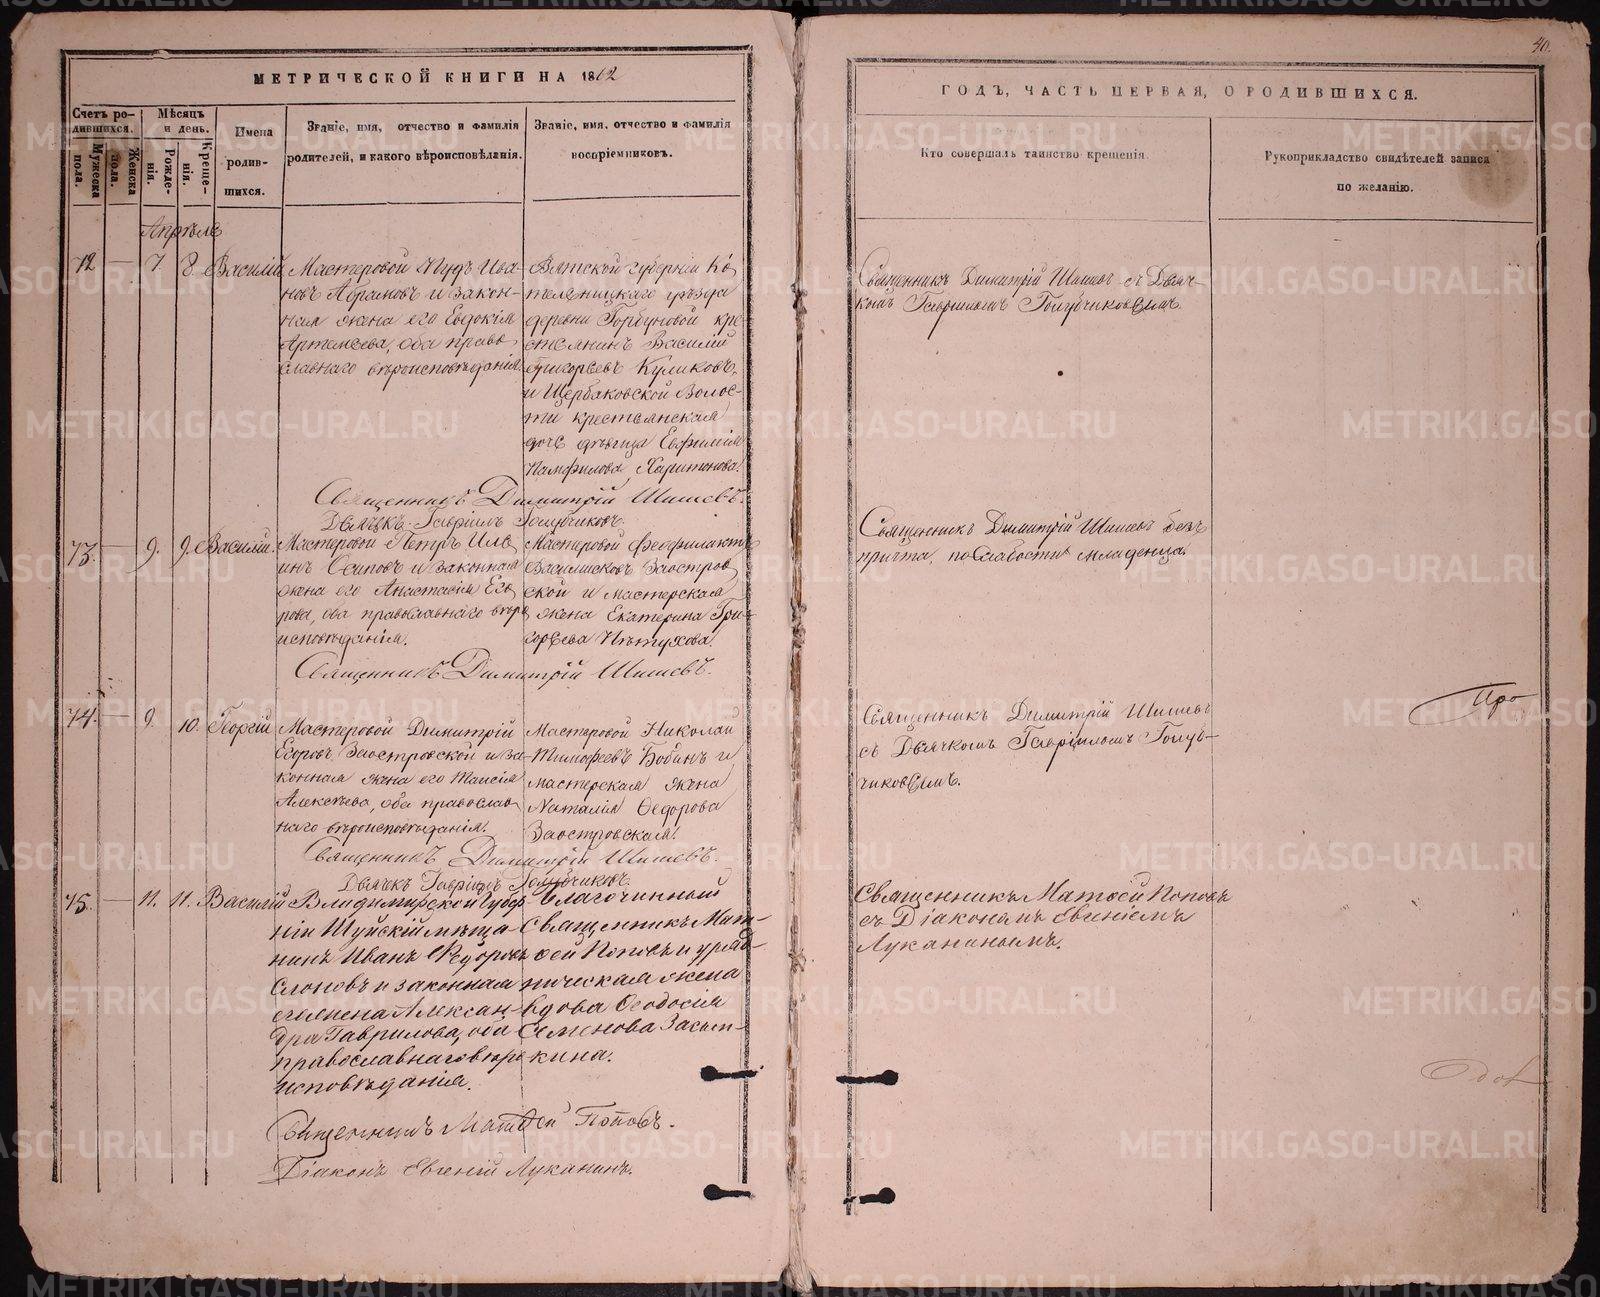 40.
МЕТРИЧЕСКОЙ КНИГИ НА 1862
ГОДЪ, ЧАСТЬ ПЕРВАЯ, О РОДИВШИХСЯ.
Счетъ ро-
дившихся.
Мужеска
пола.
Женска
пола.
Мѣсяцъ
и день.
Рожде-
нія.
Креще-
нія.
Имена
родив-
шихся.
Званіе, имя, отчество и фамилія
родителей, и какого вѣроисповѣданія.
Званіе, имя, отчество и фамилія
воспріемниковъ.
Кто совершалъ таинство крещенія.
Рукоприкладство свидѣтелей записи
по желанію.
Апрѣль
72 — 7. 8. Василій
Мастеровой Пудъ Ива-
новъ Абрамовъ и закон-
ная жена его Евдокія
Артемьева, оба право
славнаго вѣроисповѣданія.
Вятской губерніи Ко-
тельницкаго уѣзда
деревни Горбуновой кре
стьянинъ Василій
Григорьевъ Куликовъ,
и Щербаковской Волос-
ти крестьянская
дочь дѣвица Евфимія
Памфилова Харитонова.
Священникъ Димитрій Шишевъ съ Дьяч-
комъ Гавріиломъ Голубчиковымъ.
Священникъ Димитрій Шишевъ.
Дьячекъ Гавріилъ Голубчиковъ.
73. — 9. 9. Василій.
Мастеровой Петръ Иль
инъ Осиповъ и законная
жена его Анастасія Его
рова, оба православнаго вѣро
исповѣданія.
Мастеровой Феофилактъ
Василисковъ Заостров
ской и мастерская
жена Екатерина Гри-
горьева Пѣтухова.
Священникъ Димитрій Шишевъ безъ
причта, по слабости младенца.
Священникъ Димитрій Шишевъ.
74. — 9. 10. Георгій
Мастеровой Димитрій
Егоровъ Заостровской и за-
конная жена его Таисія
Алексѣева, оба православ
наго вѣроисповѣданія.
Мастеровой Николай
Тимофеевъ Бабинъ и
мастерская жена
Наталія Ѳедорова
Заостровская.
Священникъ Димитрій Шишевъ
съ Дьячкомъ Гавріиломъ Голуб-
чиковымъ.
Про
Священникъ Димитрій Шишевъ.
Дьячекъ Гавріилъ Голубчиковъ.
75. — 11. 11. Василій
Владимирской Губер
ніи Шуйскій мѣща-
нинъ Иванъ Ѳедоровъ
Слоновъ и законная
его жена Алексан-
дра Гаврилова, оба
православнаго вѣро
исповѣданія.
Благочинный
Священникъ Мат-
ѳей Поповъ и уряд-
ническая жена
вдова Ѳеодосія
Семенова Засып-
кина.
Священникъ Матѳей Поповъ
съ Діакономъ Евгеніемъ
Луканинымъ.
Священникъ Матѳей Поповъ.
Діаконъ Евгеній Луканинъ.